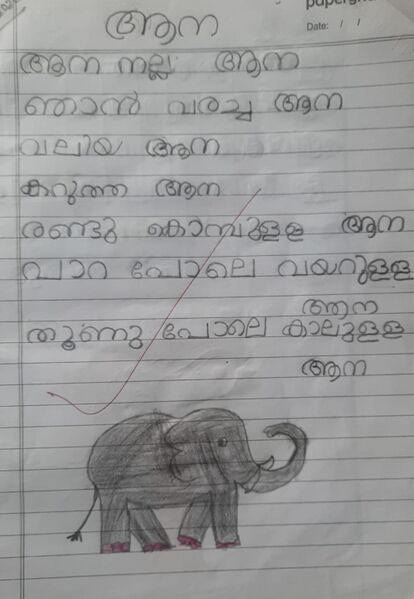 Date: / /
ആന
ആന നല്ല ആന
ഞാൻ വരച്ച ആന
വലിയ ആന
കറുത്ത ആന
രണ്ടു കൊമ്പുള്ള ആന
പാറ പോലെ വയറുള്ള
ആന
തൂണു പോലെ കാലുള്ള
ആന